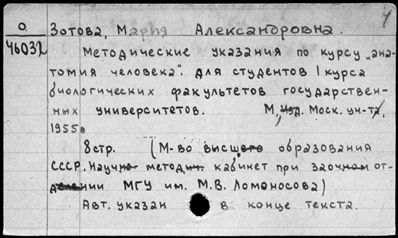 О Зотова, Мария Александровна. 1
46032 Методические указания по курсу „ана-
томия человека". Для студентов I курса
биологических факультетов государствен-
ных университетов. М, Изд. Моск. ун-та,
1955.
8стр. (М-во высшего образования
СССР. Научно-методич. кабинет при заочном от-
делении МГУ им. М.В. Ломоносова)
Авт. указан в конце текста.